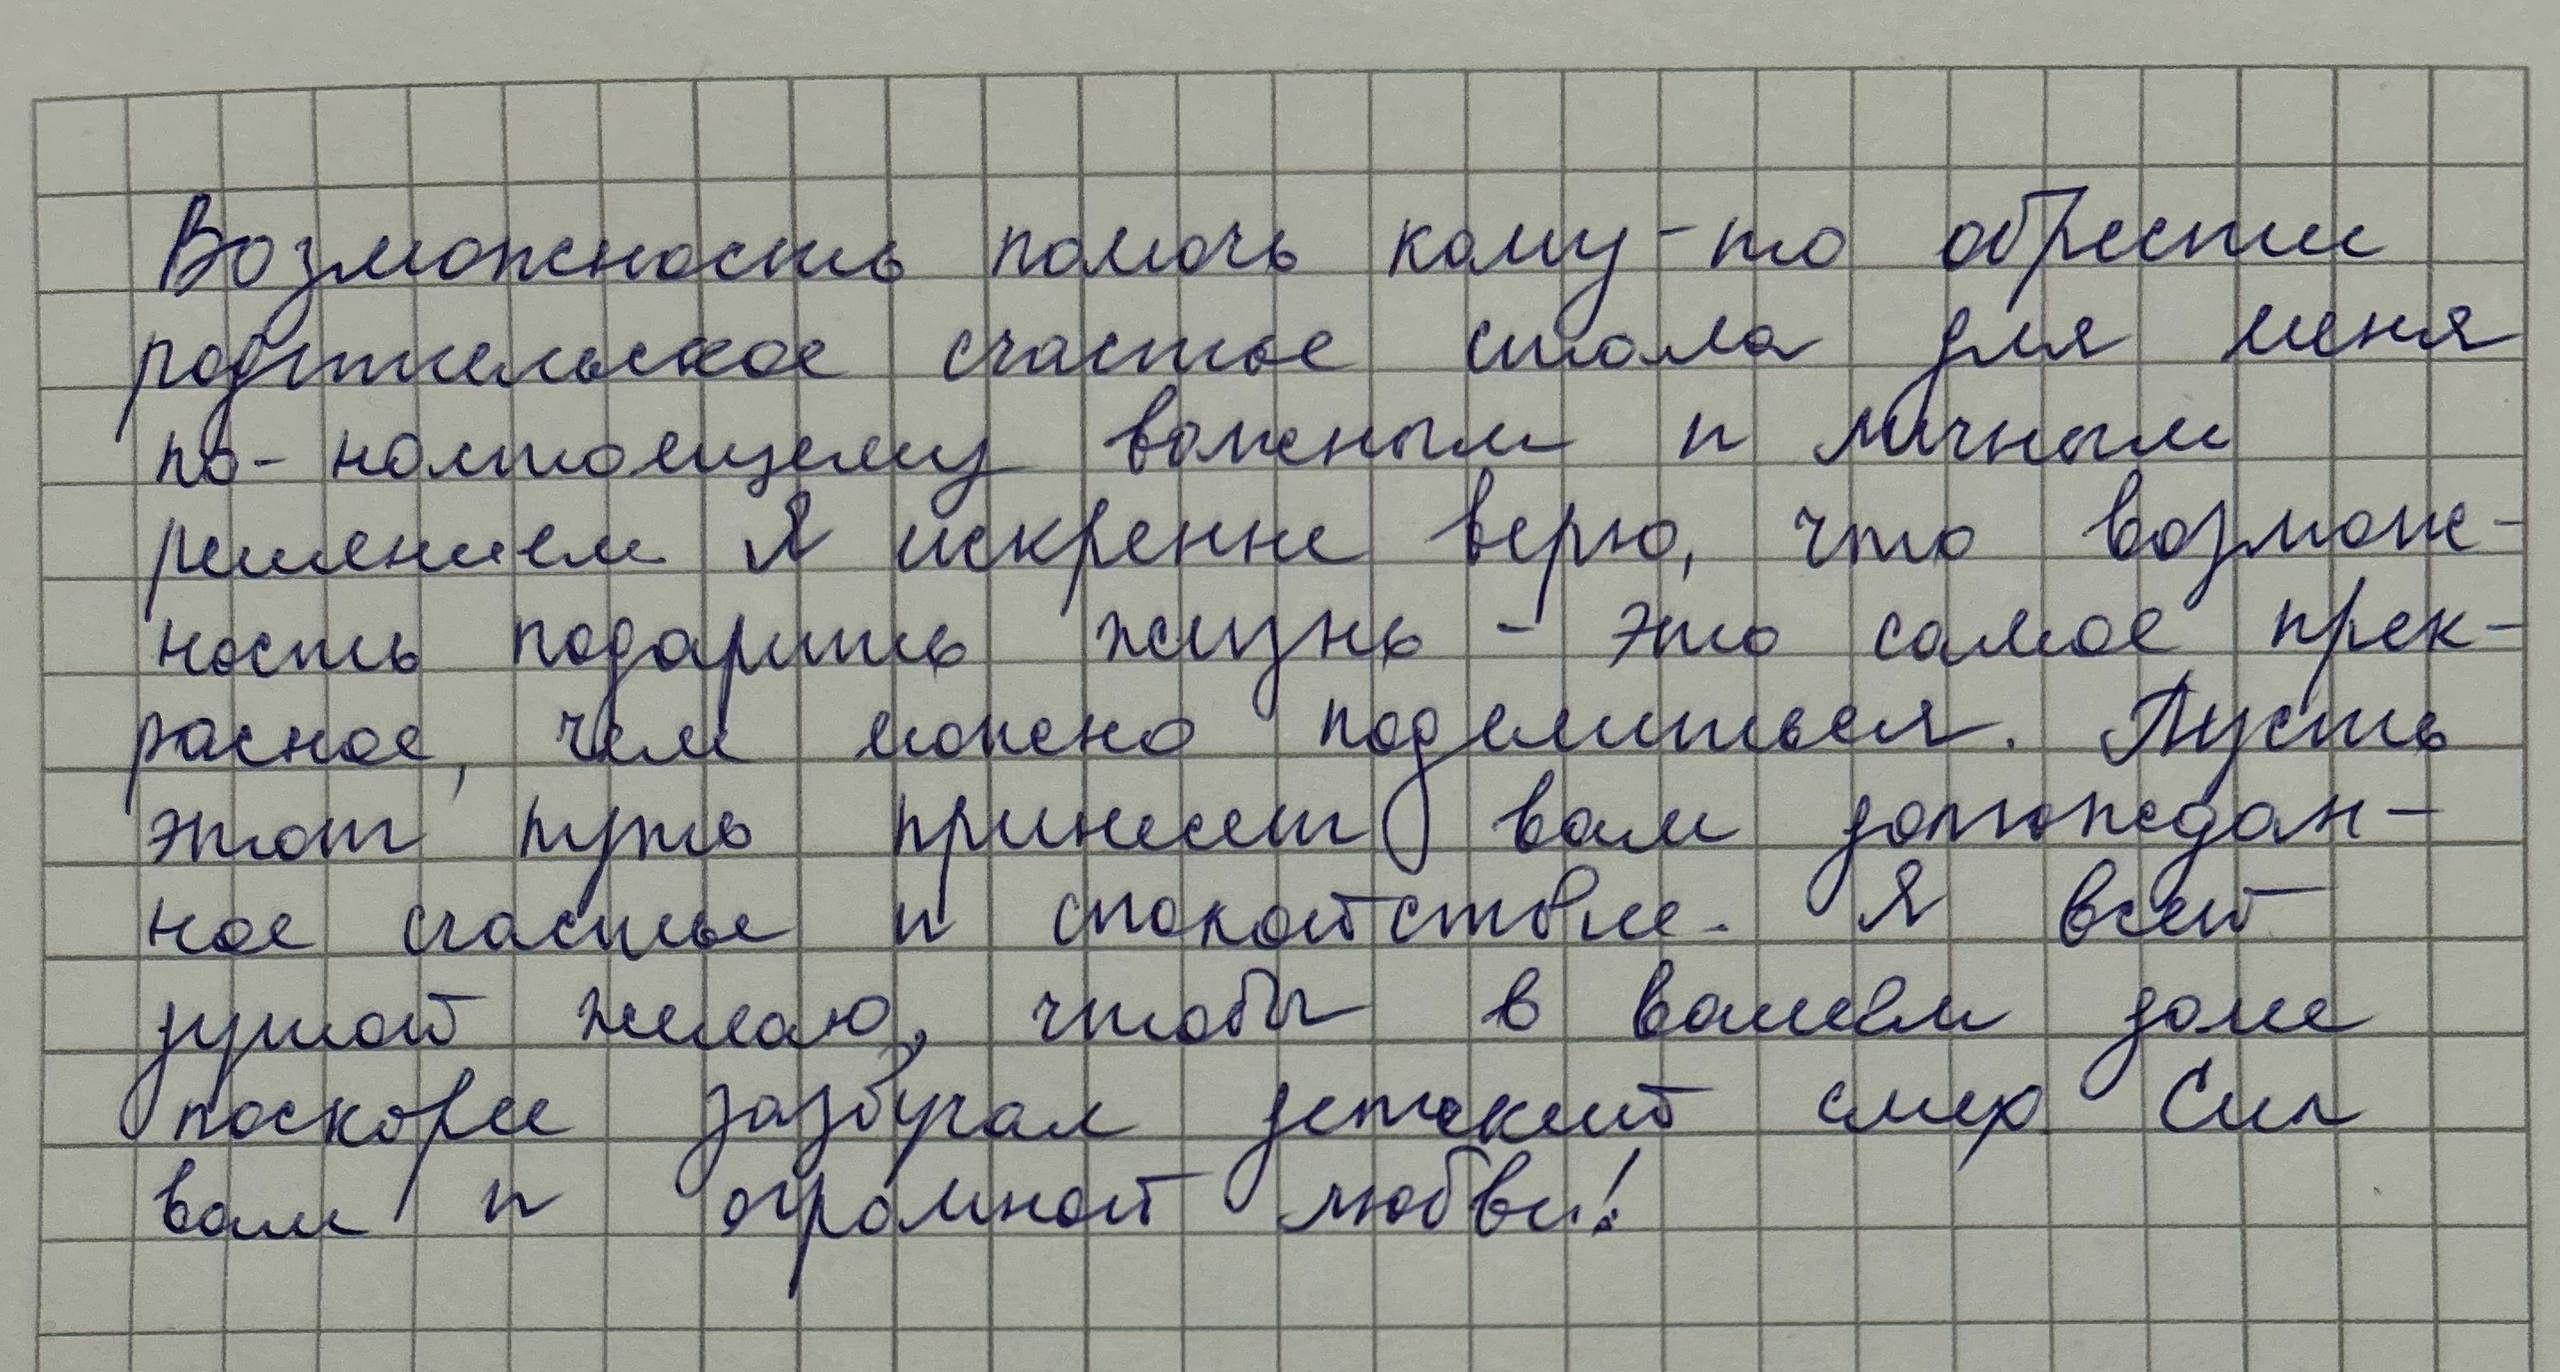 Возможность помочь кому-то обрести
родительское счастье стала для меня
по-настоящему важным и личным
решением. Я искренне верю, что возмож-
ность подарить жизнь - это самое прек-
расное, чем можно поделиться. Пусть
этот путь принесет вам долгождан-
ное счастье и спокойствие. Я всей
душой желаю, чтобы в вашем доме
поскорее зазвучал детский смех. Сил
вам и огромной любви!